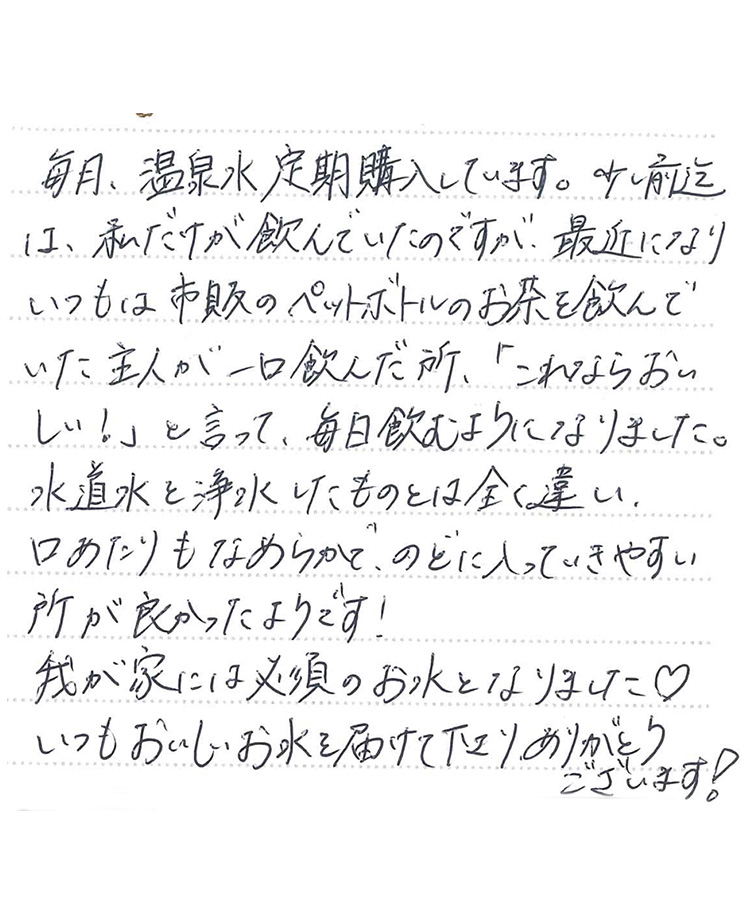 毎月、温泉水定期購入しています。少し前迄
は、私だけが飲んでいたのですが、最近になり
いつもは市販のペットボトルのお茶を飲んで
いた主人が一口飲んだ所、「これならおい
しい!」と言って、毎日飲むようになりました。
水道水を浄水したものとは全く違い、
口あたりもなめらかで、のどに入っていきやすい
所が良かったようです!
我が家には必須のお水となりました♡
いつもおいしいお水を届けて下さり、ありがとう
ございます!